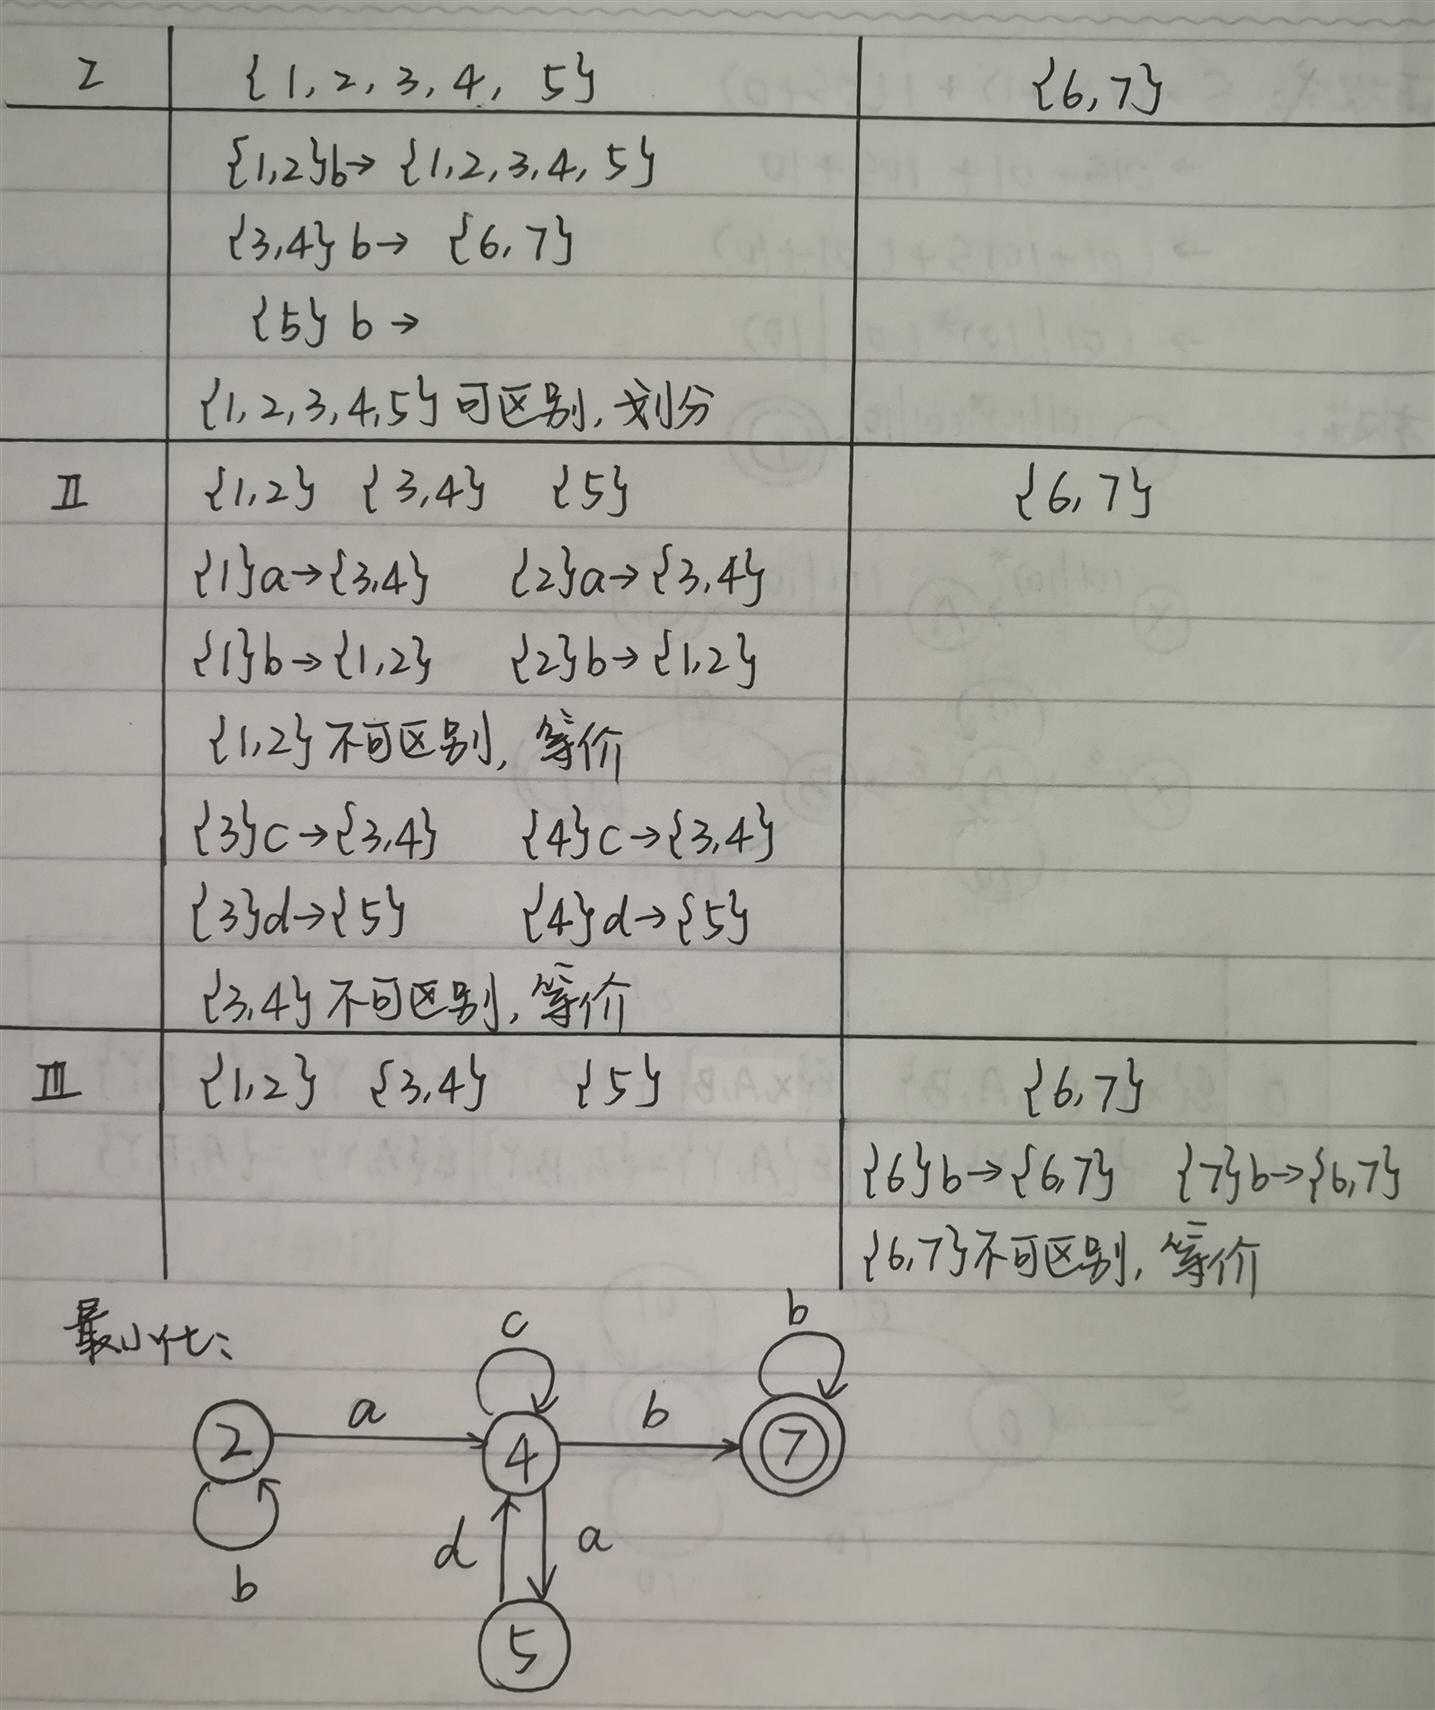 I {1,2,3,4,5} {6,7}
{1,2}b→ {1,2,3,4,5}
{3,4}b→ {6,7}
{5}b→
{1,2,3,4,5}可区别,划分
II {1,2} {3,4} {5} {6,7}
{1}a→{3,4} {2}a→{3,4}
{1}b→{1,2} {2}b→{1,2}
{1,2}不可区别,等价
{3}c→{3,4} {4}c→{3,4}
{3}d→{5} {4}d→{5}
{3,4}不可区别,等价
III {1,2} {3,4} {5} {6,7}
{6}b→{6,7} {7}b→{6,7}
{6,7}不可区别,等价
最小化:
c b
a b
2 4 7
d a
b
5